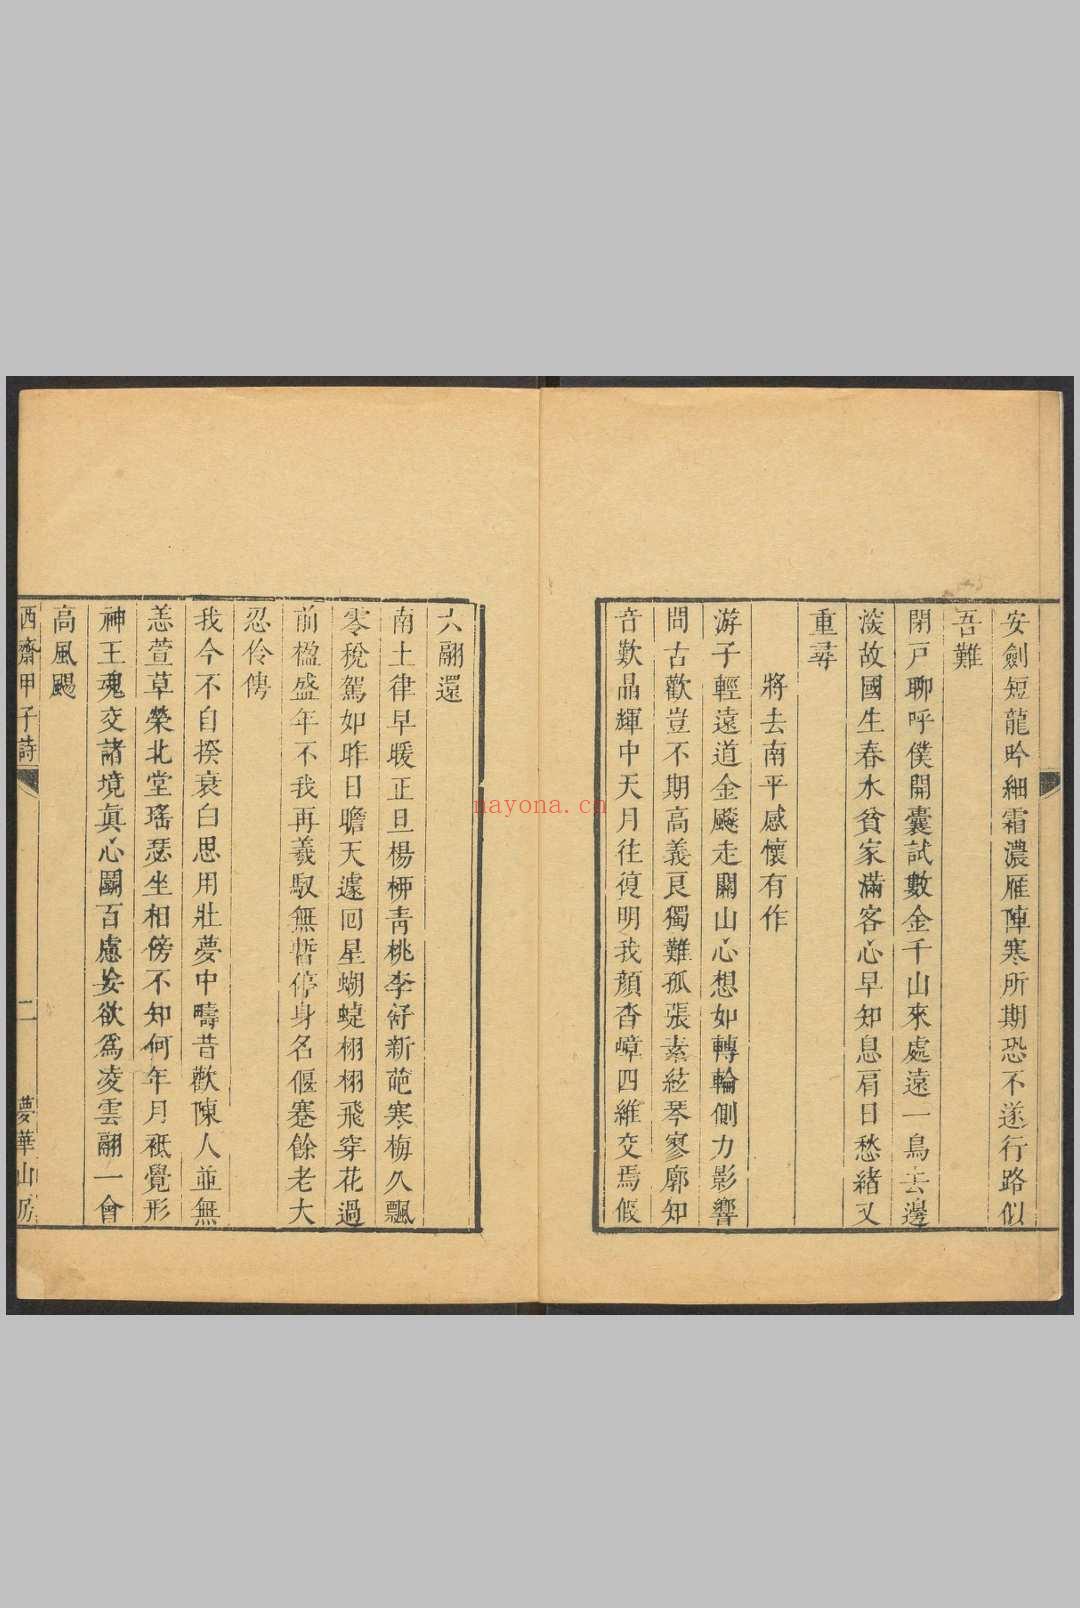 安劍短龍吟細霜濃雁陣寒所期恐不遂行路似
吾難
閉戸聊呼僕開囊試數金千山來處遠一鳥去邊
深故國生春水貧家滿客心早知息肩日愁緒又
重尋
將去南平感懷有作
游子輕遠道金飈走關山心想如轉輪側力影響
問古歡豈不期高義良獨難孤張素絃琴寥廓知
音歎晶輝中天月往復明我顏杳嶂四維交焉假
六翮還
南土律早暖正旦楊柳青桃李舒新葩寒梅久飄
零稅駕如昨日瞻天遽回星蝴蜨栩栩飛穿花過
前楹盛年不我再羲馭無暫停身名偃蹇餘老大
忍伶俜
我今不自揆衰白思用壯夢中疇昔歡陳人並無
恙萱草榮北堂瑤瑟坐相傍不知何年月秪覺形
神王魂交諸境眞心鬭百慮妄欲爲凌雲翮一會
高風颺
西齋甲子詩
二
夢華山房
nayona.cn